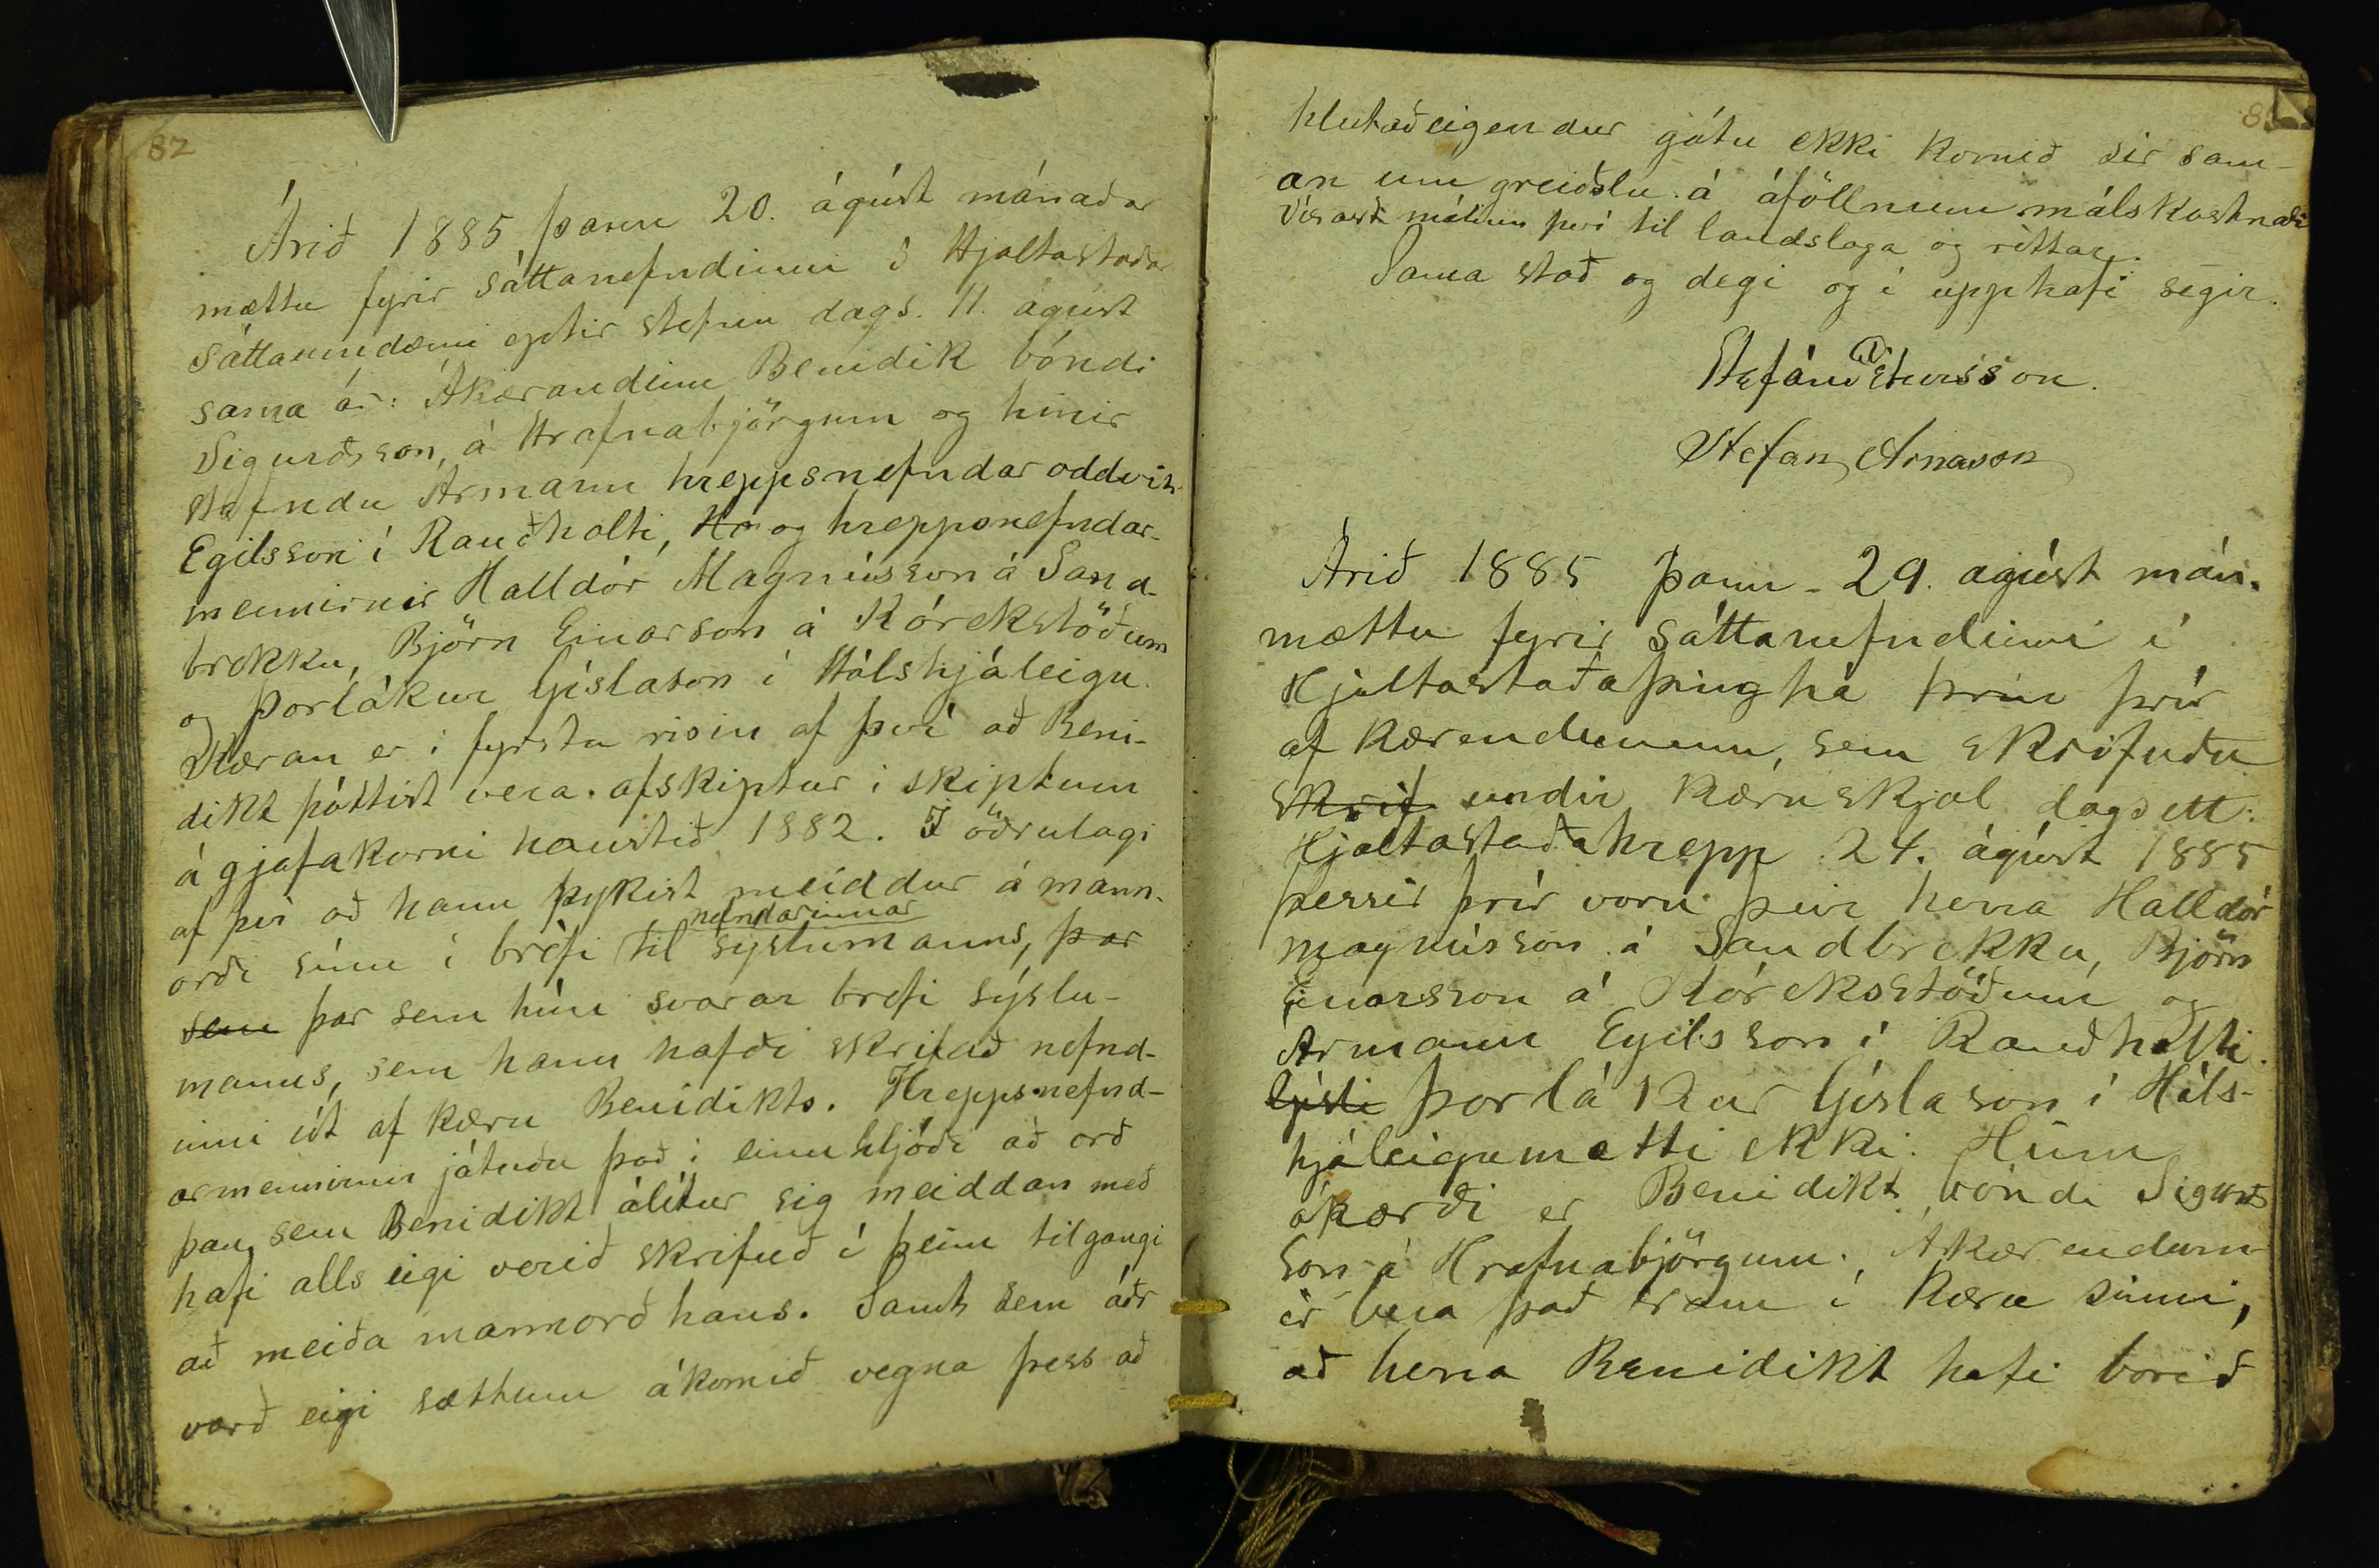 82
Árið 1885 þann 20. ágúst mánaðar
mættu fyrir sáttanefndinni í Hjaltastaðar
sáttaumdæmi eptir stefnu dags. 11. ágúst
sama ár: Ákærandinn Benidik bóndi
Sigurðsson, á Hrafnabjörgum og hinir
stefndu Armann hreppsnefndar oddviti
Egilsson í Rauðholti, Hr og hreppsnefndar-
mennirnir Halldór Magnússon á Sand-
brekku, Björn Einarson á Kórekstöðum
og Þorlákur Gíslason í Hálshjáleigu.
Kæran er í fyrsta risin af því að Beni-
dikt þóttist vera afskiptur í skiptum
á gjafakorni haustið 1882. Í öðrulagi
af því að hann þykist meiddur á mann-
orði sínu í bréfi til nefndarinnar sýslumanns, þar
sem þar sem hún svarar brefi sýslu-
manns, sem hann hafði skrifað nefnd-
inni út af kæru Benidikts. Hreppsnefnd-
armennirnir játuðu það í einu hljóði að orð
þau sem Benidikt álítur sig meiddan með
hafi alls eigi verið skrifuð í þeim tilgangi
að meiða mannorð hans. Samt sem áðr
varð eigi sættum ákomið vegna þess að
hlutaðeigendur gátu ekki komið sér sam-
an um greiðslu á áföllnum málskostnaði
Vísast málinu því til landslaga og réttar.
Sama stað og degi og í upphafi segir.
Stefán Pétursson.
Stefan Arnason
Árið 1885 þann 29. agúst mán.
mættu fyrir sáttanefndinni í
Hjaltastaðaþinghá þrír þrír
af kærendunum, sem skrifuðu
skrif undir kæruskjal dagsett:
Hjaltastaðahrepp 24. ágúst 1885
þessir þrír voru þeir herra Halldór
magnússon á Sandbrekku, Björn
Einarsson á Kóreksstöðum og
Armann Egilsson í Rauðholti.
Gísli Þorlákur Gíslason í Háls-
hjáleigu mætti ekki. Hinn
ákærði er Benidikt bóndi Sigurðs
son á Hrafnabjörgum. Ákærendurn
ir bera það fram í kæru sinni,
að herra Benidikt hafi borið